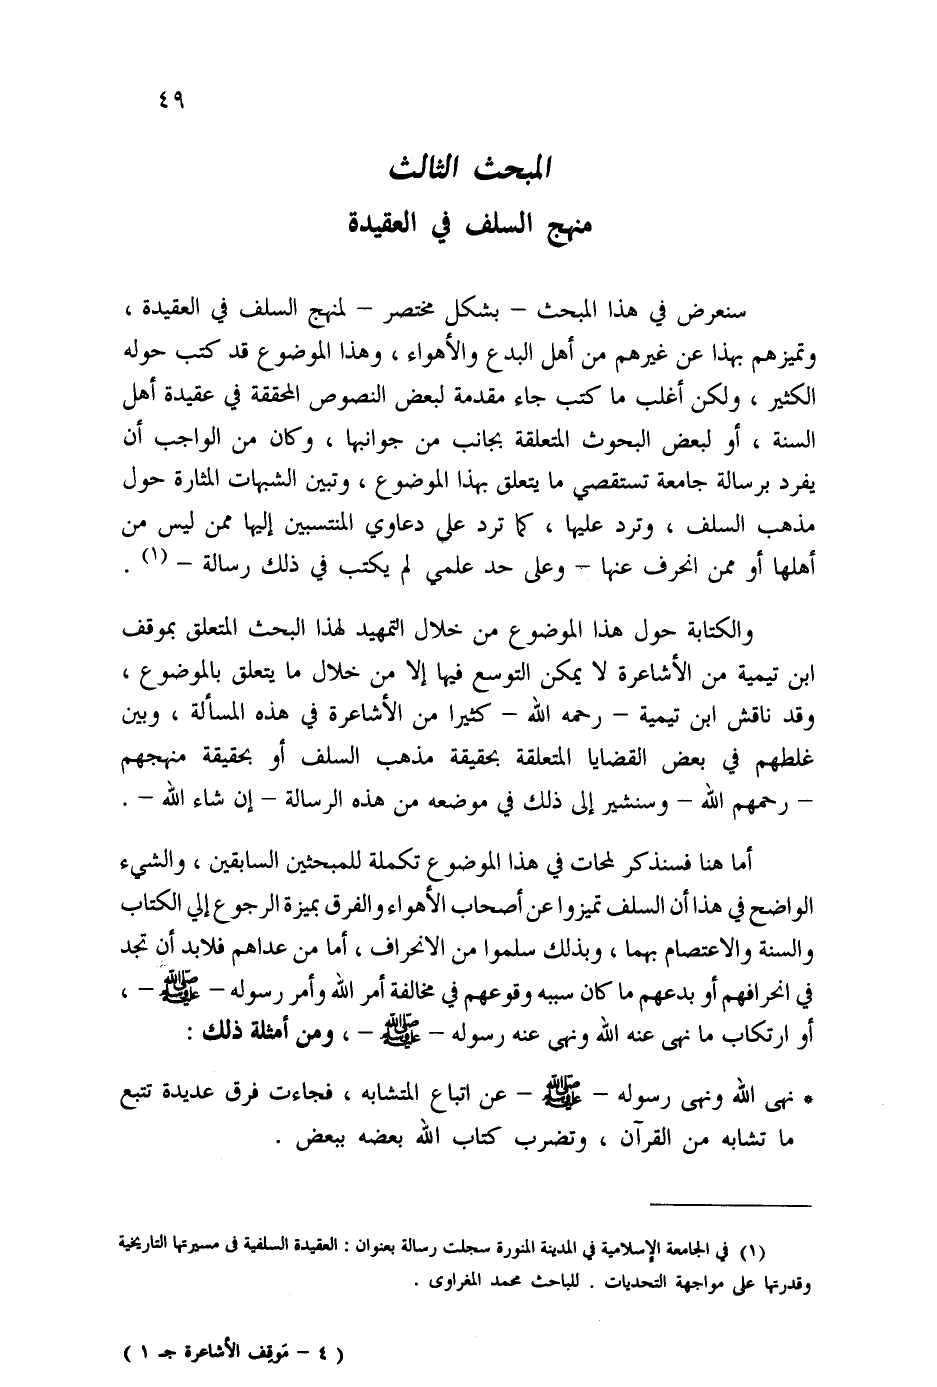 ٤٩
المبحث الثالث
منهج السلف في العقيدة
سنعرض في هذا المبحث – بشكل مختصر – لمنهج السلف في العقيدة ،
وتميزهم بهذا عن غيرهم من أهل البدع والأهواء ، وهذا الموضوع قد كتب حوله
الكثير ، ولكن أغلب ما كتب جاء مقدمة لبعض النصوص المحققة في عقيدة أهل
السنة ، أو لبعض البحوث المتعلقة بجانب من جوانبها ، وكان من الواجب أن
يفرد برسالة جامعة تستقصي ما يتعلق بهذا الموضوع ، وتبين الشبهات المثارة حول
مذهب السلف ، وترد عليها ، كما ترد على دعاوي المنتسبين إليها ممن ليس من
أهلها أو ممن انحرف عنها – وعلى حد علمي لم يكتب في ذلك رسالة – (١) .
والكتابة حول هذا الموضوع من خلال التمهيد لهذا البحث المتعلق بموقف
ابن تيمية من الأشاعرة لا يمكن التوسع فيها إلا من خلال ما يتعلق بالموضوع ،
وقد ناقش ابن تيمية – رحمه الله – كثيرا من الأشاعرة في هذه المسألة ، وبين
غلطهم في بعض القضايا المتعلقة بحقيقة مذهب السلف أو بحقيقة منهجهم
– رحمهم الله – وسنشير إلى ذلك في موضعه من هذه الرسالة – إن شاء الله – .
أما هنا فسنذكر لمحات في هذا الموضوع تكملة للمبحثين السابقين ، والشيء
الواضح في هذا أن السلف تميزوا عن أصحاب الأهواء والفرق بميزة الرجوع إلى الكتاب
والسنة والاعتصام بهما ، وبذلك سلموا من الانحراف ، أما من عداهم فلابد أن تجد
في انحرافهم أو بدعهم ما كان سببه وقوعهم في مخالفة أمر الله وأمر رسوله – ﷺ – ،
أو ارتكاب ما نهى عنه الله ونهى عنه رسوله – ﷺ – ، ومن أمثلة ذلك :
* نهى الله ونهى رسوله – ﷺ – عن اتباع المتشابه ، فجاءت فرق عديدة تتبع
ما تشابه من القرآن ، وتضرب كتاب الله بعضه ببعض .
(١) في الجامعة الإسلامية في المدينة المنورة سجلت رسالة بعنوان : العقيدة السلفية فى مسيرتها التاريخية
وقدرتها على مواجهة التحديات . للباحث محمد المغراوى .
( ٤ – مَوقِف الأشاعرة جـ ١ )